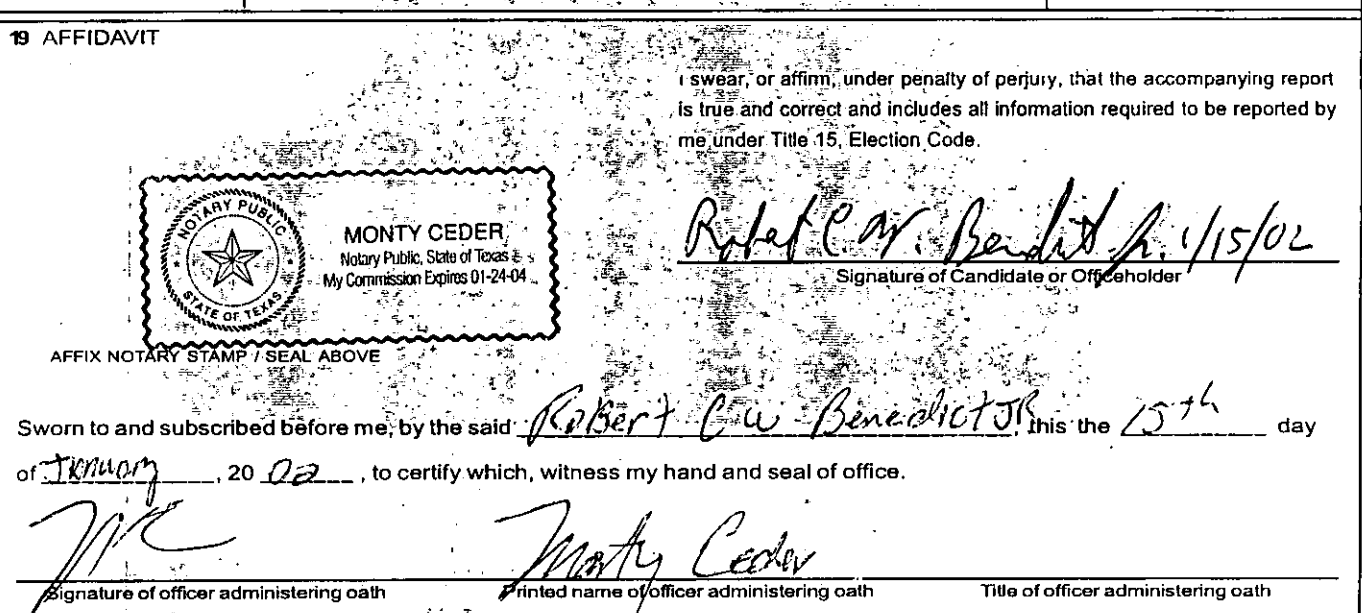 19 AFFIDAVIT
I swear, or affirm, under penalty of perjury, that the accompanying report
is true and correct and includes all information required to be reported by
me under Title 15, Election Code.
NOTARY PUBLIC
STATE OF TEXAS
MONTY CEDER
Notary Public, State of Texas
My Commission Expires 01-24-04
Robert C. W. Benedict Jr. 1/15/02
Signature of Candidate or Officeholder
AFFIX NOTARY STAMP / SEAL ABOVE
Sworn to and subscribed before me, by the said Robert C W Benedict JR, this the 15th day
of January, 20 02, to certify which, witness my hand and seal of office.
Monty Ceder
Signature of officer administering oath Printed name of officer administering oath Title of officer administering oath